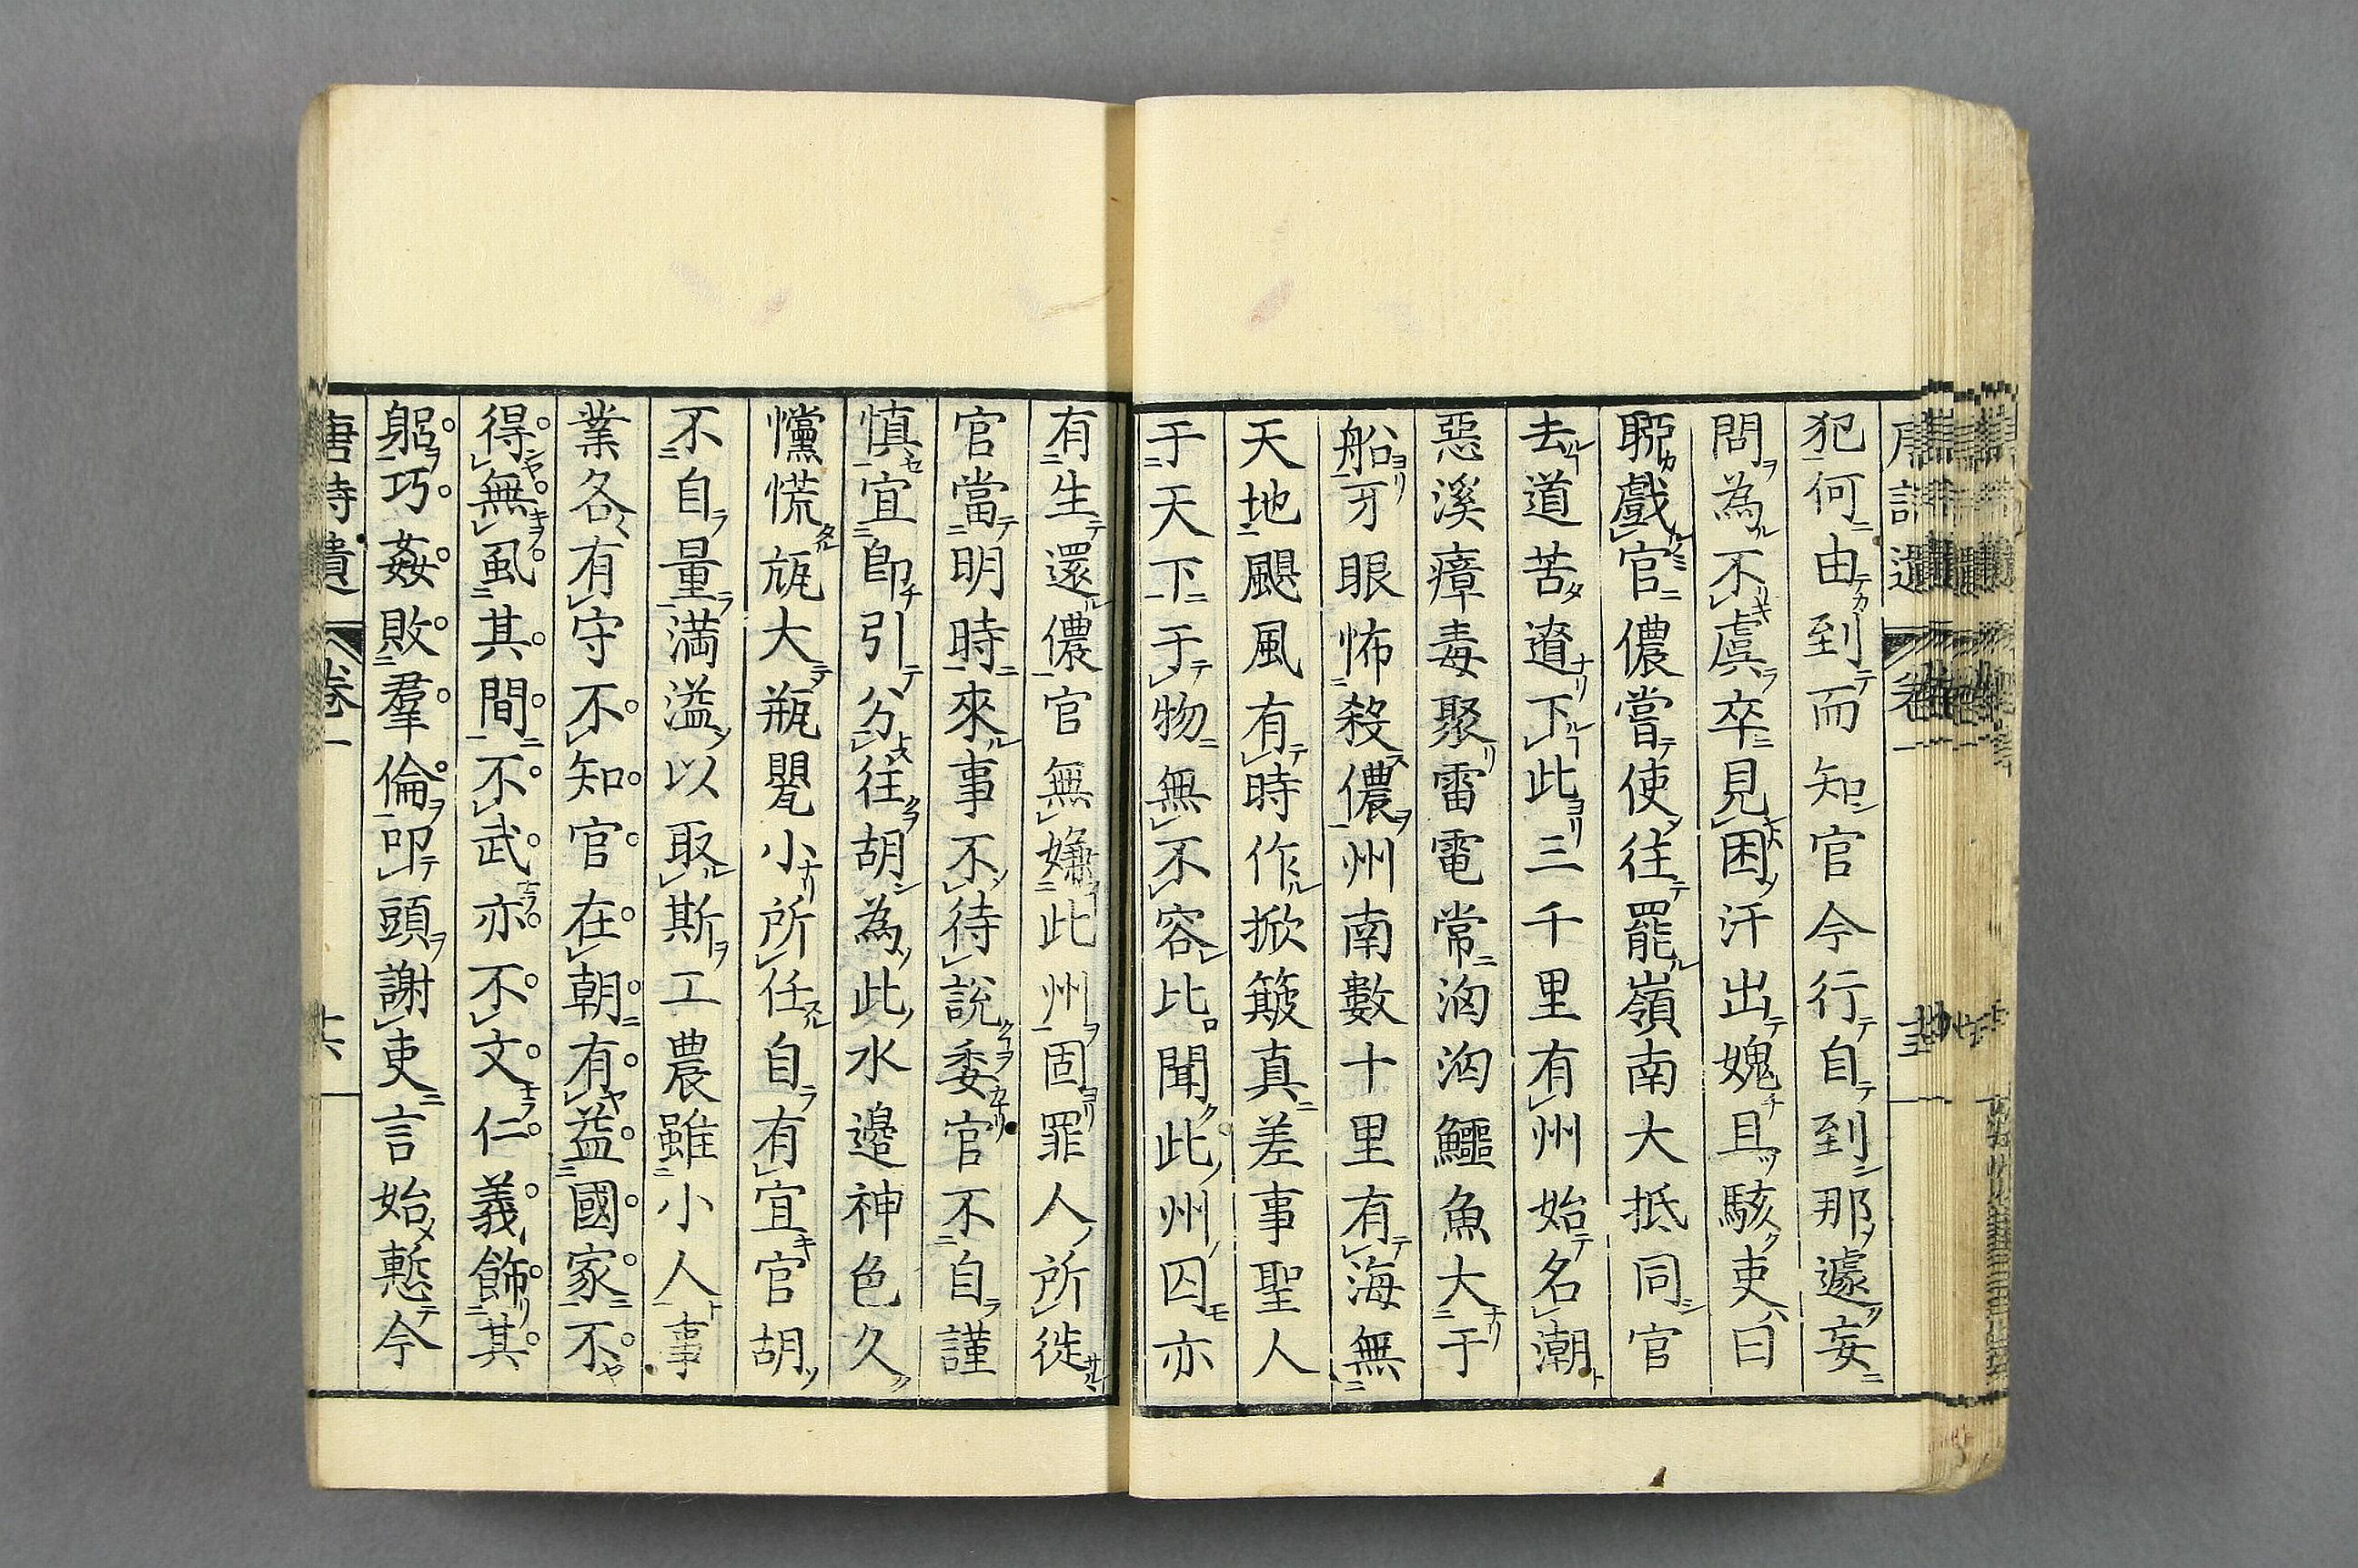 犯何由到而知官今行自到那遽妄
問為不虞卒見困汗出愧且駭吏曰
聊戲官儂嘗使往罷嶺南大抵同官
去道苦遼下此三千里有州始名潮
惡溪瘴毒聚雷電常洶洶鱷魚大于
船牙眼怖殺儂州南數十里有海無
天地颶風有時作掀簸真差事聖人
于天下于物無不容比聞此州囚亦
有生還儂官無嫌此州固罪人所徙
官當明時來事不待說委官不自謹
慎宜即引分往胡為此水邊神色久
戃慌瓬大瓶甖小所任自有宜官胡
不自量滿溢以取斯工農雖小人事
業各有守不知官在朝有益國家不
得無虱其間不武亦不文仁義飾其
躬巧姦敗羣倫叩頭謝吏言始慙今
唐詩遺 卷一
十六